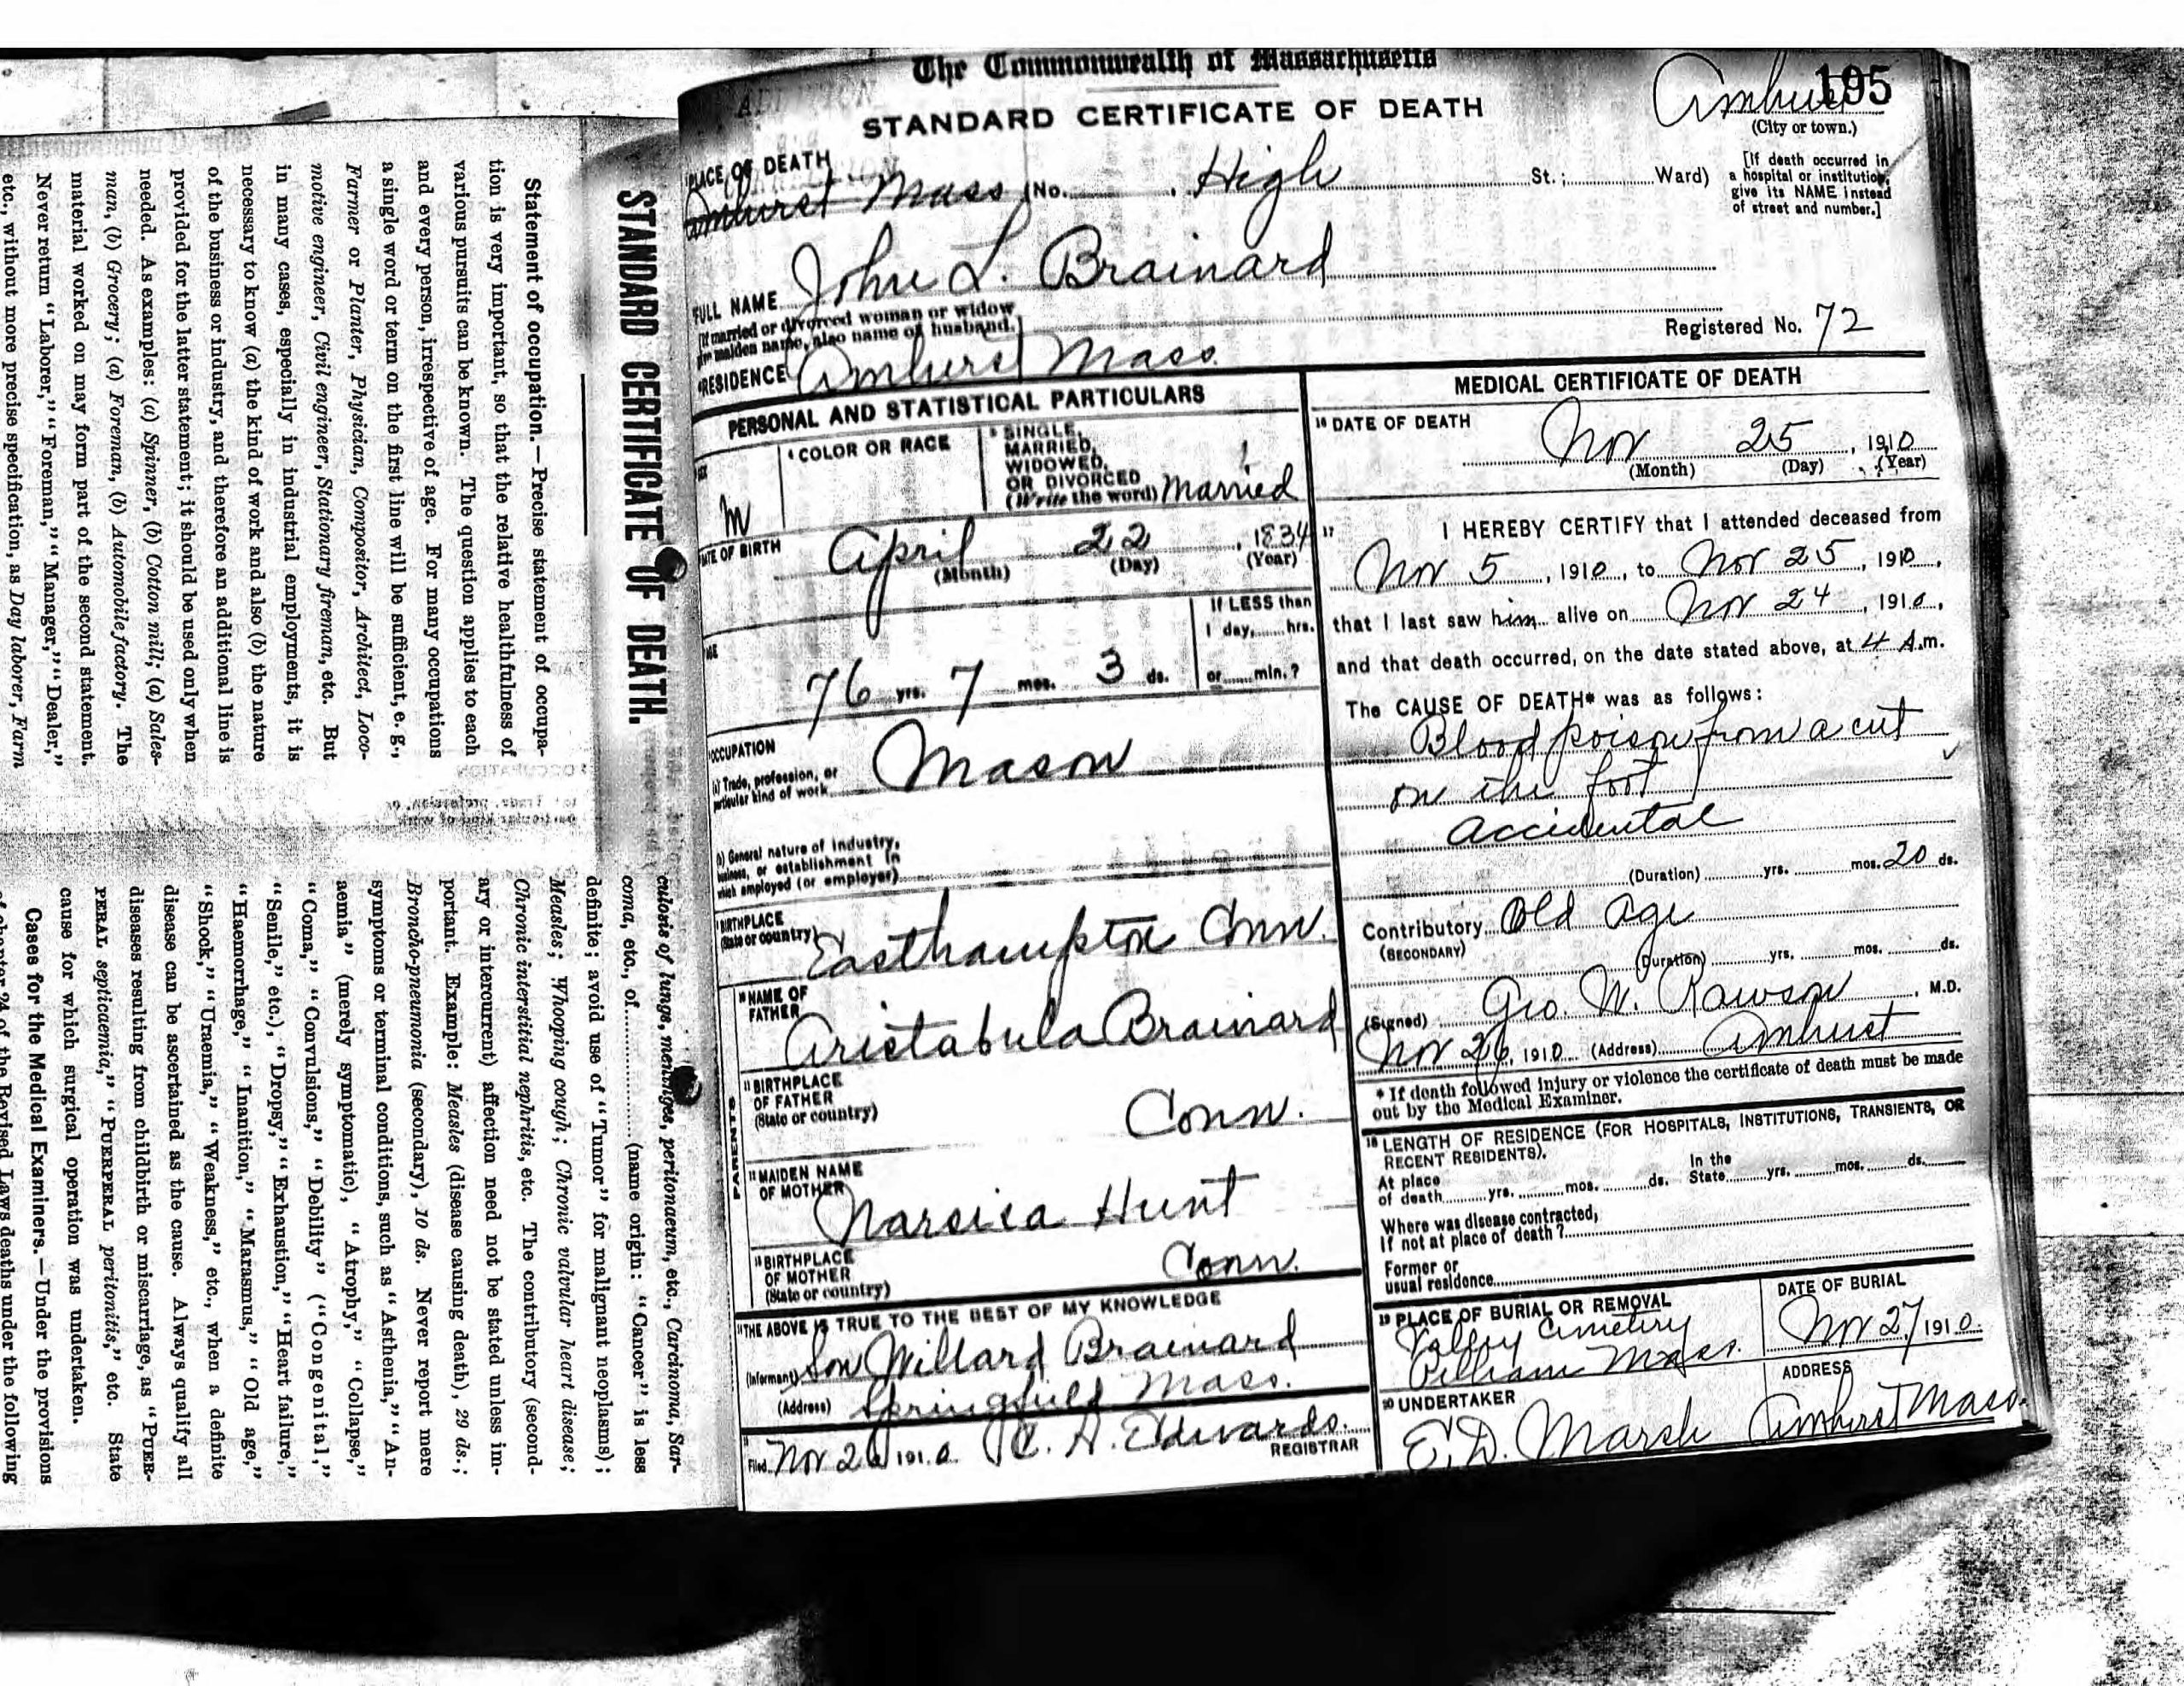 The Commonwealth of Massachusetts
195
STANDARD CERTIFICATE OF DEATH
Amhurst
(City or town.)
PLACE OF DEATH
Amhurst Mass (No. , High St.; Ward)
[If death occurred in
a hospital or institution,
give its NAME instead
of street and number.]
FULL NAME John L. Brainard
[If married or divorced woman or widow
give maiden name, also name of husband.]
Registered No. 72
RESIDENCE Amhurst Mass.
PERSONAL AND STATISTICAL PARTICULARS
SEX
M
4 COLOR OR RACE
5 SINGLE,
MARRIED,
WIDOWED,
OR DIVORCED
(Write the word) Married
DATE OF BIRTH
April 22, 1834
(Month) (Day) (Year)
AGE
76 yrs. 7 mos. 3 ds.
If LESS than
1 day, hrs.
or min.?
OCCUPATION
(a) Trade, profession, or
particular kind of work Mason
(b) General nature of industry,
business, or establishment in
which employed (or employer)
BIRTHPLACE
(State or country) Easthampton Conn.
10 NAME OF
FATHER
Aristabula Brainard
11 BIRTHPLACE
OF FATHER
(State or country) Conn.
PARENTS
12 MAIDEN NAME
OF MOTHER
Narsisa Hunt
13 BIRTHPLACE
OF MOTHER
(State or country) Conn.
14 THE ABOVE IS TRUE TO THE BEST OF MY KNOWLEDGE
(Informant) Son Willard Brainard
(Address) Springfield Mass.
15
Filed Nov 26 1910 C. A. Edwards.
REGISTRAR
MEDICAL CERTIFICATE OF DEATH
16 DATE OF DEATH
Nov 25, 1910
(Month) (Day) (Year)
17 I HEREBY CERTIFY that I attended deceased from
Nov 5, 1910, to Nov 25, 1910,
that I last saw him alive on Nov 24, 1910,
and that death occurred, on the date stated above, at 4 A.m.
The CAUSE OF DEATH* was as follows:
Blood poison from a cut
on the foot
accidental
(Duration) yrs. mos. 20 ds.
Contributory Old Age
(SECONDARY)
(Duration) yrs. mos. ds.
(Signed) Geo. W. Rawson, M.D.
Nov 26, 1910 (Address) Amhurst
* If death followed injury or violence the certificate of death must be made
out by the Medical Examiner.
18 LENGTH OF RESIDENCE (FOR HOSPITALS, INSTITUTIONS, TRANSIENTS, OR
RECENT RESIDENTS).
At place
of death yrs. mos. ds.
In the
State yrs. mos. ds.
Where was disease contracted,
If not at place of death?
Former or
usual residence
19 PLACE OF BURIAL OR REMOVAL
Valley Cemetery
Pelham Mass.
DATE OF BURIAL
Nov 27 1910
20 UNDERTAKER
E. D. Marsh
ADDRESS
Amhurst Mass.
STANDARD CERTIFICATE OF DEATH.
Statement of occupation.—Precise statement of occupa-
tion is very important, so that the relative healthfulness of
various pursuits can be known. The question applies to each
and every person, irrespective of age. For many occupations
a single word or term on the first line will be sufficient, e. g.,
Farmer or Planter, Physician, Compositor, Architect, Loco-
motive engineer, Civil engineer, Stationary fireman, etc. But
in many cases, especially in industrial employments, it is
necessary to know (a) the kind of work and also (b) the nature
of the business or industry, and therefore an additional line is
provided for the latter statement; it should be used only when
needed. As examples: (a) Spinner, (b) Cotton mill; (a) Sales-
man, (b) Grocery; (a) Foreman, (b) Automobile factory. The
material worked on may form part of the second statement.
Never return "Laborer," "Foreman," "Manager," "Dealer,"
etc., without more precise specification, as Day laborer, Farm
culosis of lungs, meninges, peritonaeum, etc., Carcinoma, Sar-
coma, etc., of ............ (name origin: "Cancer" is less
definite; avoid use of "Tumor" for malignant neoplasms);
Measles; Whooping cough; Chronic valvular heart disease;
Chronic interstitial nephritis, etc. The contributory (second-
ary or intercurrent) affection need not be stated unless im-
portant. Example: Measles (disease causing death), 29 ds.;
Broncho-pneumonia (secondary), 10 ds. Never report mere
symptoms or terminal conditions, such as "Asthenia," "An-
aemia" (merely symptomatic), "Atrophy," "Collapse,"
"Coma," "Convulsions," "Debility" ("Congenital,"
"Senile," etc.), "Dropsy," "Exhaustion," "Heart failure,"
"Haemorrhage," "Inanition," "Marasmus," "Old age,"
"Shock," "Uraemia," "Weakness," etc., when a definite
disease can be ascertained as the cause. Always qualify all
diseases resulting from childbirth or miscarriage, as "PUER-
PERAL septicaemia," "PUERPERAL peritonitis," etc. State
cause for which surgical operation was undertaken.
Cases for the Medical Examiners.—Under the provisions
of chapter 24 of the Revised Laws deaths under the following